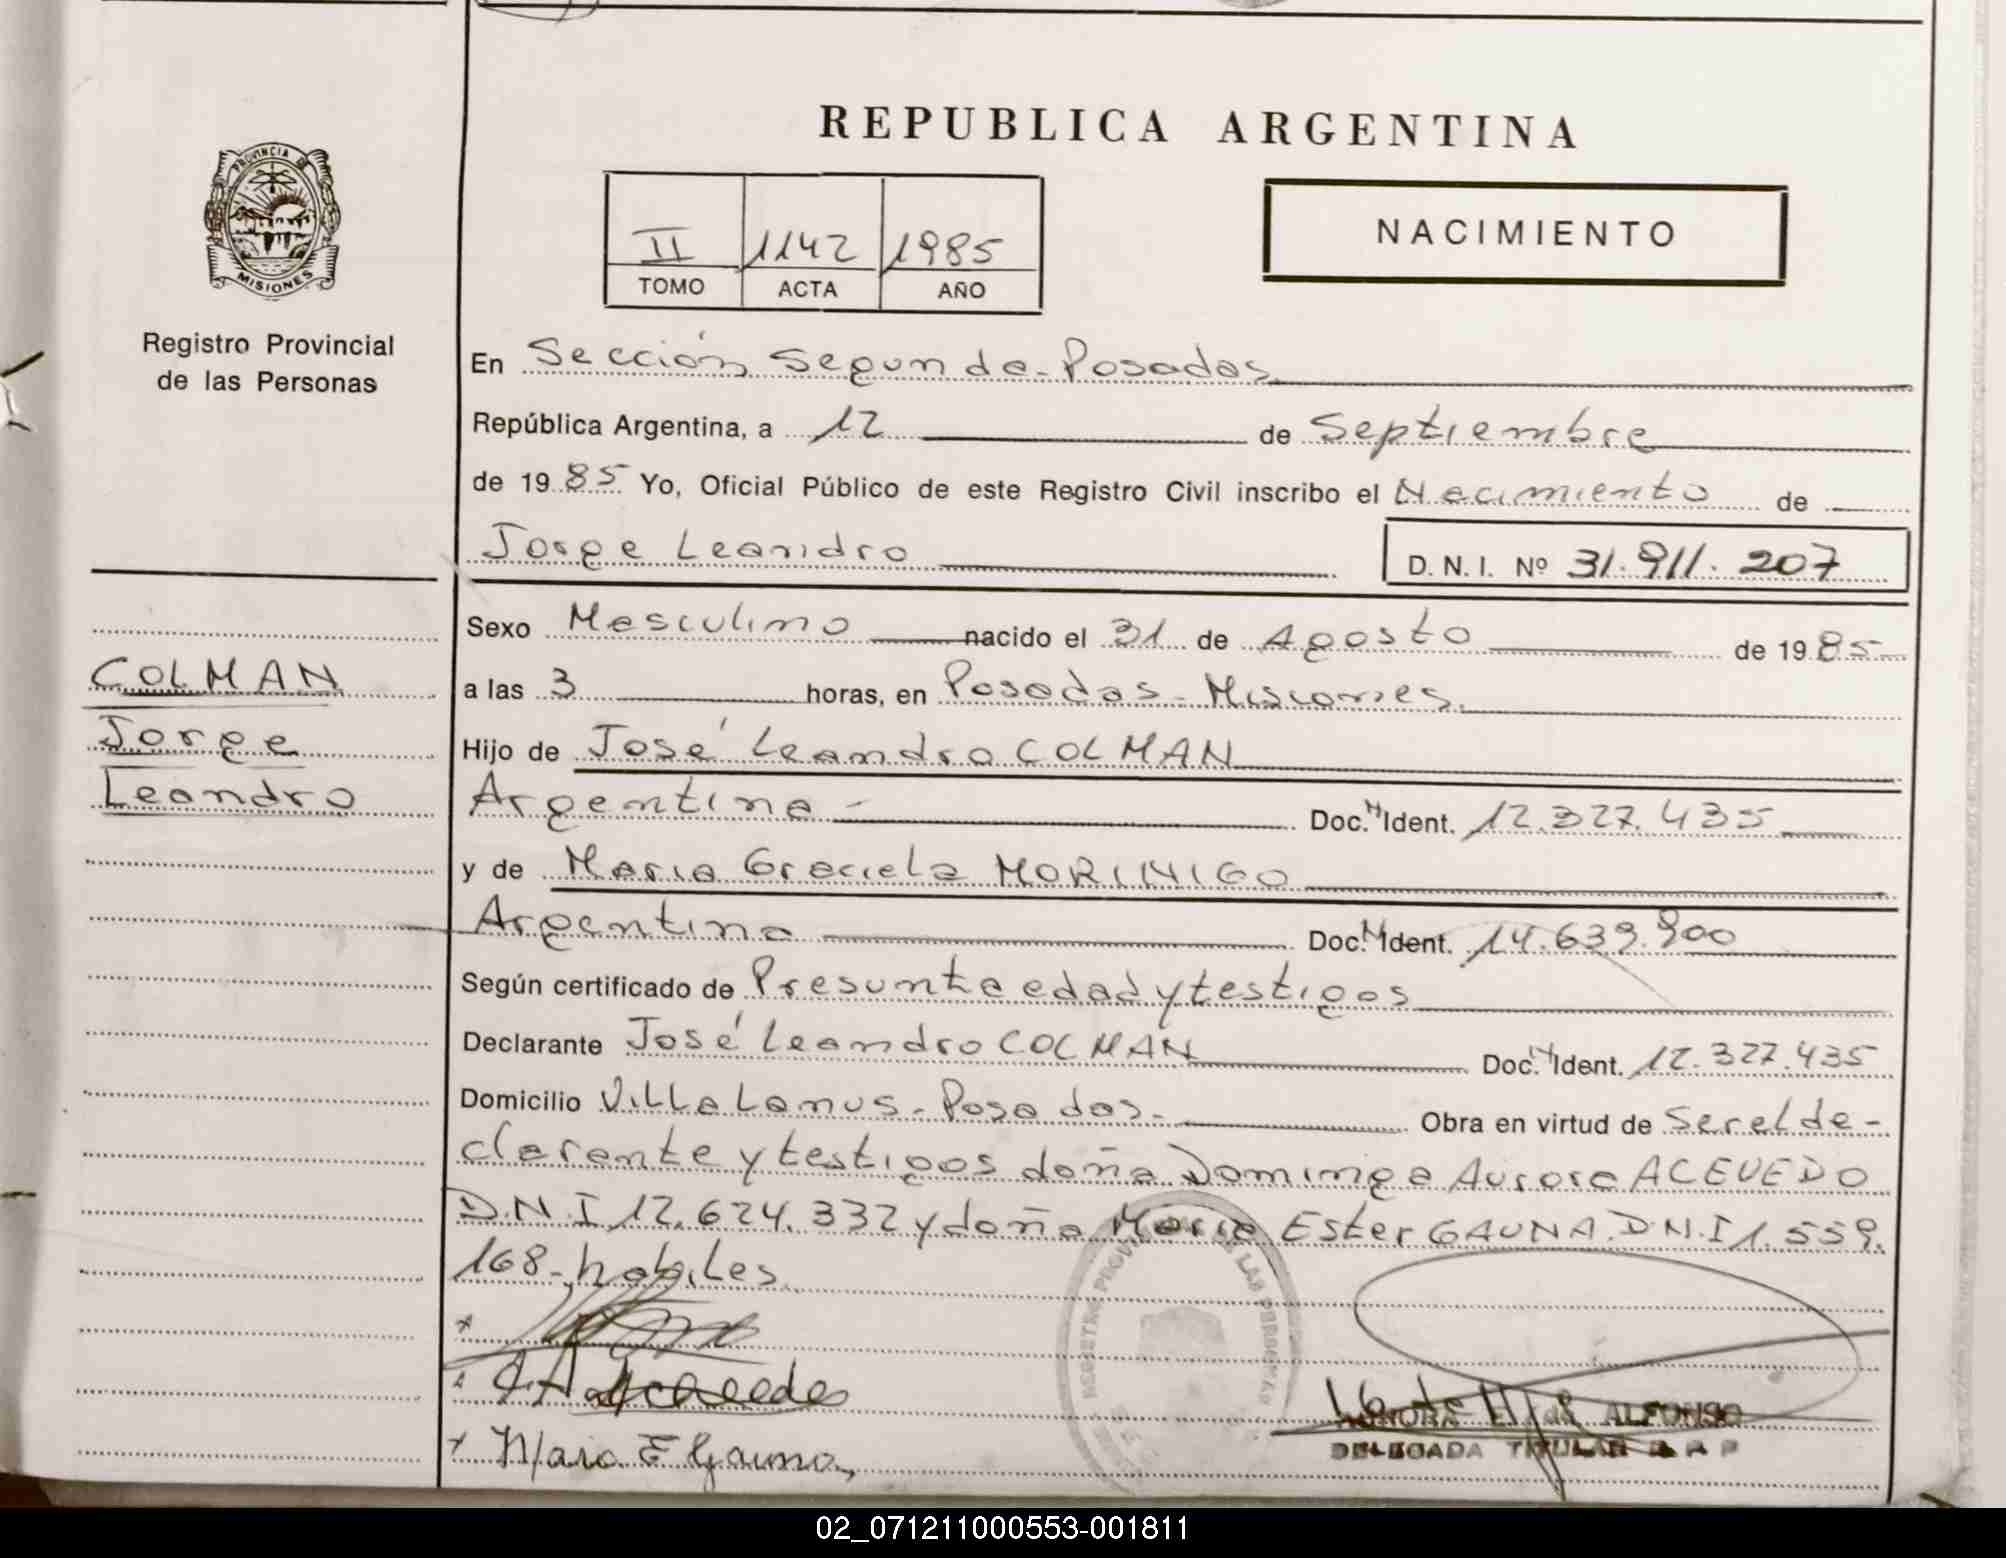 REPUBLICA ARGENTINA
PROVINCIA DE
MISIONES
Registro Provincial
de las Personas
II 1142 1985
TOMO ACTA AÑO
NACIMIENTO
En Sección Segunda - Posadas
República Argentina, a 12 de Septiembre
de 1985 Yo, Oficial Público de este Registro Civil inscribo el Nacimiento de
Jorge Leandro D. N. I. Nº 31.911.207
COLMAN
Jorge
Leandro
Sexo Masculino nacido el 31 de Agosto de 1985
a las 3 horas, en Posadas - Misiones.
Hijo de José Leandro COLMAN
Argentina - Doc. N Ident. 12.327.435
y de Maria Graciela MORINIGO
Argentina Doc. N Ident. 14.639.900
Según certificado de Presunta edad y testigos
Declarante José Leandro COLMAN Doc. N Ident. 12.327.435
Domicilio Villa Lanus - Posadas - Obra en virtud de Ser el de-
clarante y testigos doña Dominga Aurora ACEVEDO
D.N.I 12.624.332 y doña Maria Ester GAUNA. D.N.I 1.559.
168 - habiles.
Maria E Gauna
ALFONSO
DELEGADA TITULAR
02_071211000553-001811